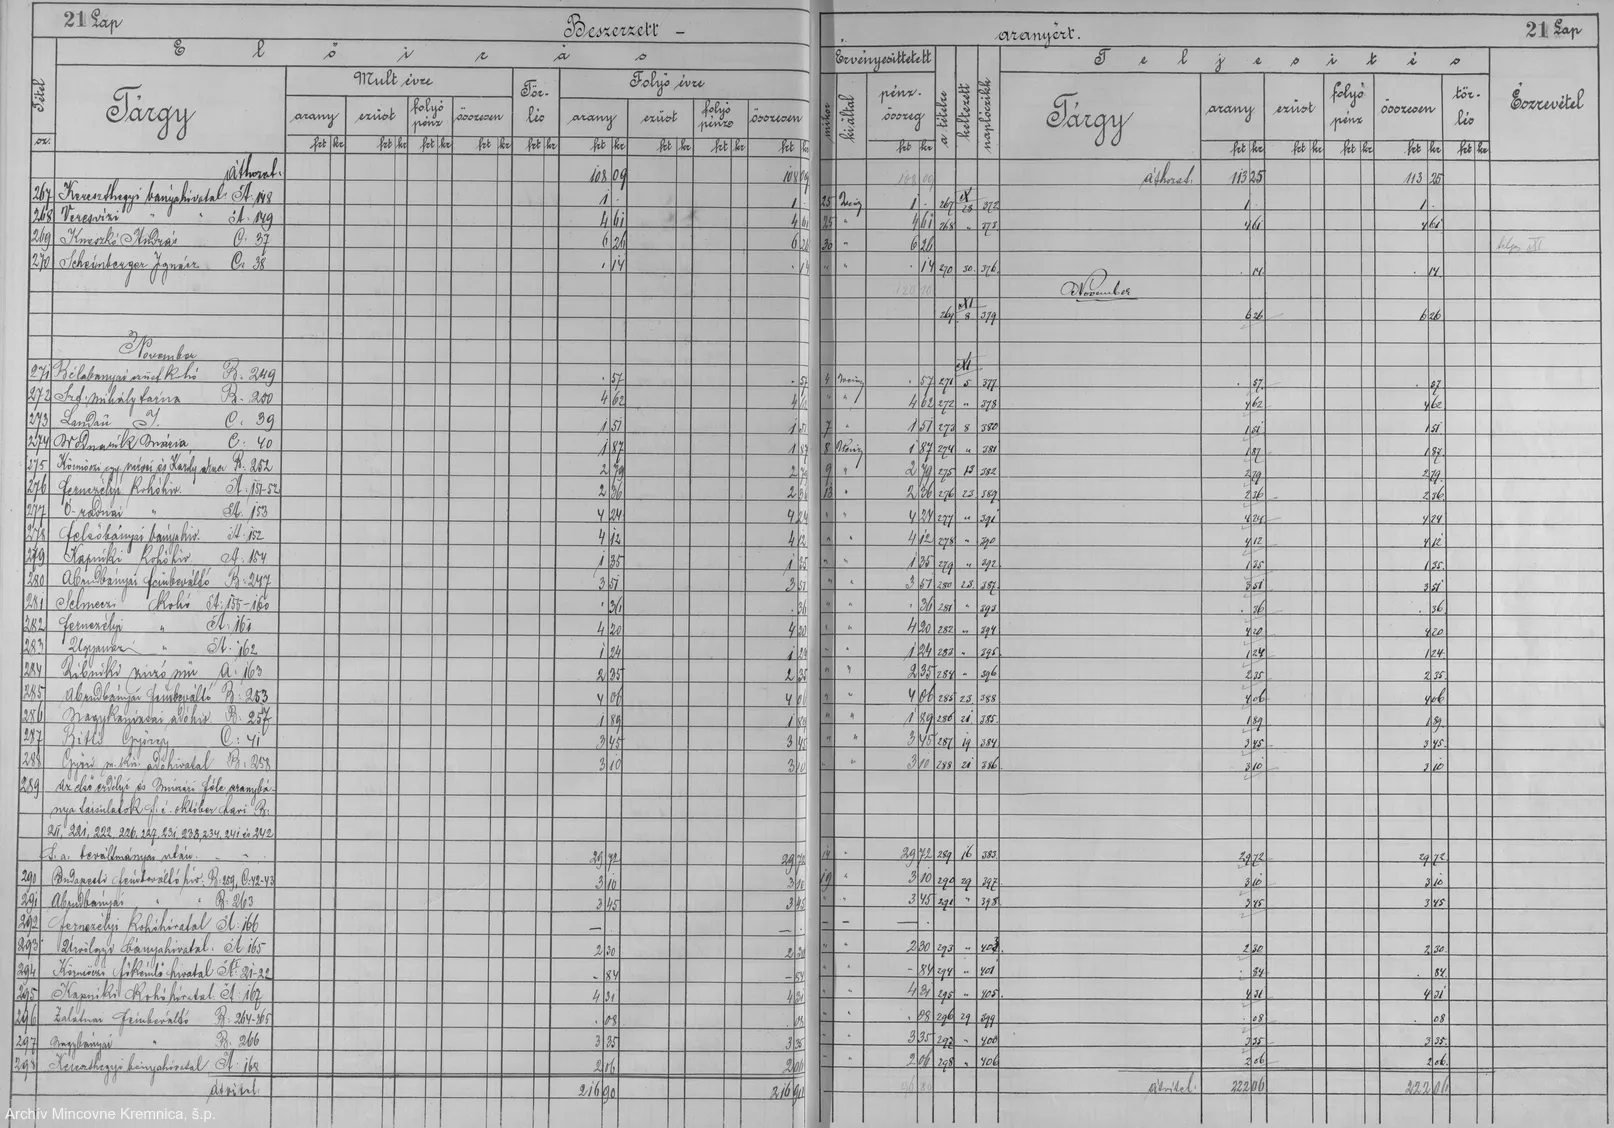 21 Lap
Beszerzett —
aranyért.
21 Lap
Előirás
Érvényesittetett
Teljesités
Tétel sz.
Tárgy
Mult évre
Törlés
Folyó évre
mikor
ki által
pénz. összeg
a tételre
keltezett
naplóczikk
Tárgy
arany
ezüst
folyó pénz
összesen
törlés
Észrevétel
arany
ezüst
folyó pénz
összesen
arany
ezüst
folyó pénz
összesen
frt kr
Áthozat. 108 09 108 09
Áthozat. 113 25 113 25
267 Kereszthegyi bányahivatal A. 148 1 - 1 - 25 1 - 267 X 28 372 1 - 1 -
268 Veresvizi " " A. 149 4 61 4 61 25 " 4 61 268 " 373 4 61 4 61
269 András C. 37 6 26 6 26 30 " 6 26
270 Scheinberger Ignácz C. 38 14 14 " " 14 270 30 376 14 14
November
269 XI 8 379 6 26 6 26
November
271 Bélabányai B. 249 57 57 4 57 271 XI 5 377 57 57
272 Mihály B. 250 4 62 4 62 " " 4 62 272 " 378 4 62 4 62
273 Landau J. C. 39 1 51 1 51 7 " 1 51 273 8 380 1 51 1 51
274 Mária C. 40 1 87 1 87 8 1 87 274 " 381 1 87 1 87
275 Károly B. 252 2 79 2 79 9 " 2 79 275 13 382 2 79 2 79
276 Fernezélyi Kohóhiv. A. 151-52 2 36 2 36 13 " 2 36 276 23 389 2 36 2 36
277 Ó-radnai " A. 153 4 24 4 24 " " 4 24 277 " 391 4 24 4 24
278 Felsőbányai bányahiv. A. 152 4 12 4 12 " " 4 12 278 " 390 4 12 4 12
279 Kapniki Kohóhiv. A. 154 1 35 1 35 " " 1 35 279 " 392 1 35 1 35
280 Abrudbányai fémbeváltó B. 247 3 51 3 51 " " 3 51 280 23 387 3 51 3 51
281 Selmeczi Kohó A. 155-160 36 36 " " 36 281 " 393 36 36
282 Fernezélyi " A. 161 4 20 4 20 " " 4 20 282 " 394 4 20 4 20
283 Ugyanaz " A. 162 1 24 1 24 " " 1 24 283 " 395 1 24 1 24
284 Zsibniki zuzó mű A. 163 2 35 2 35 " " 2 35 284 " 396 2 35 2 35
285 Abrudbányai fémbeváltó B. 253 4 06 4 06 " " 4 06 285 23 388 4 06 4 06
286 Nagykanizsai adóhiv. B. 257 1 89 1 89 " " 1 89 286 21 385 1 89 1 89
287 György C. 41 3 45 3 45 " " 3 45 287 19 384 3 45 3 45
288 Győri m. kir. adóhivatal B. 258 3 10 3 10 " " 3 10 288 21 386 3 10 3 10
289 Az első erdélyi és féle aranybá-
nya társulatok f. é. október havi B.
211, 221, 222, 226, 227, 231, 233, 234, 241 és 242
beváltmányai után. 29 72 29 72 14 " 29 72 289 16 383 29 72 29 72
290 Budapesti fémbeváltó hiv. B. 259, C. 42-43 3 10 3 10 19 " 3 10 290 29 397 3 10 3 10
291 Abrudbányai " " B. 263 3 45 3 45 " " 3 45 291 " 398 3 45 3 45
292 Fernezélyi Kohóhivatal A. 166 — — — — —
293 bányahivatal. A. 165 2 30 2 30 " " 2 30 293 " 403 2 30 2 30
294 Körmöczi főkémlő hivatal A. 21-22 - 84 - 84 " " - 84 294 " 401 84 84
295 Kapniki Kohóhivatal A. 167 4 31 4 31 " " 4 31 295 " 405 4 31 4 31
296 Zalatnai fémbeváltó B. 264-265 08 08 " " 08 296 29 399 08 08
297 Nagybányai " B. 266 3 35 3 35 " " 3 35 297 " 400 3 35 3 35
298 Kereszthegyi bányahivatal A. 168 2 06 2 06 " " 2 06 298 " 406 2 06 2 06
Átvitel. 216 90 216 90
Átvitel. 222 06 222 06
Archív Mincovne Kremnica, š.p.